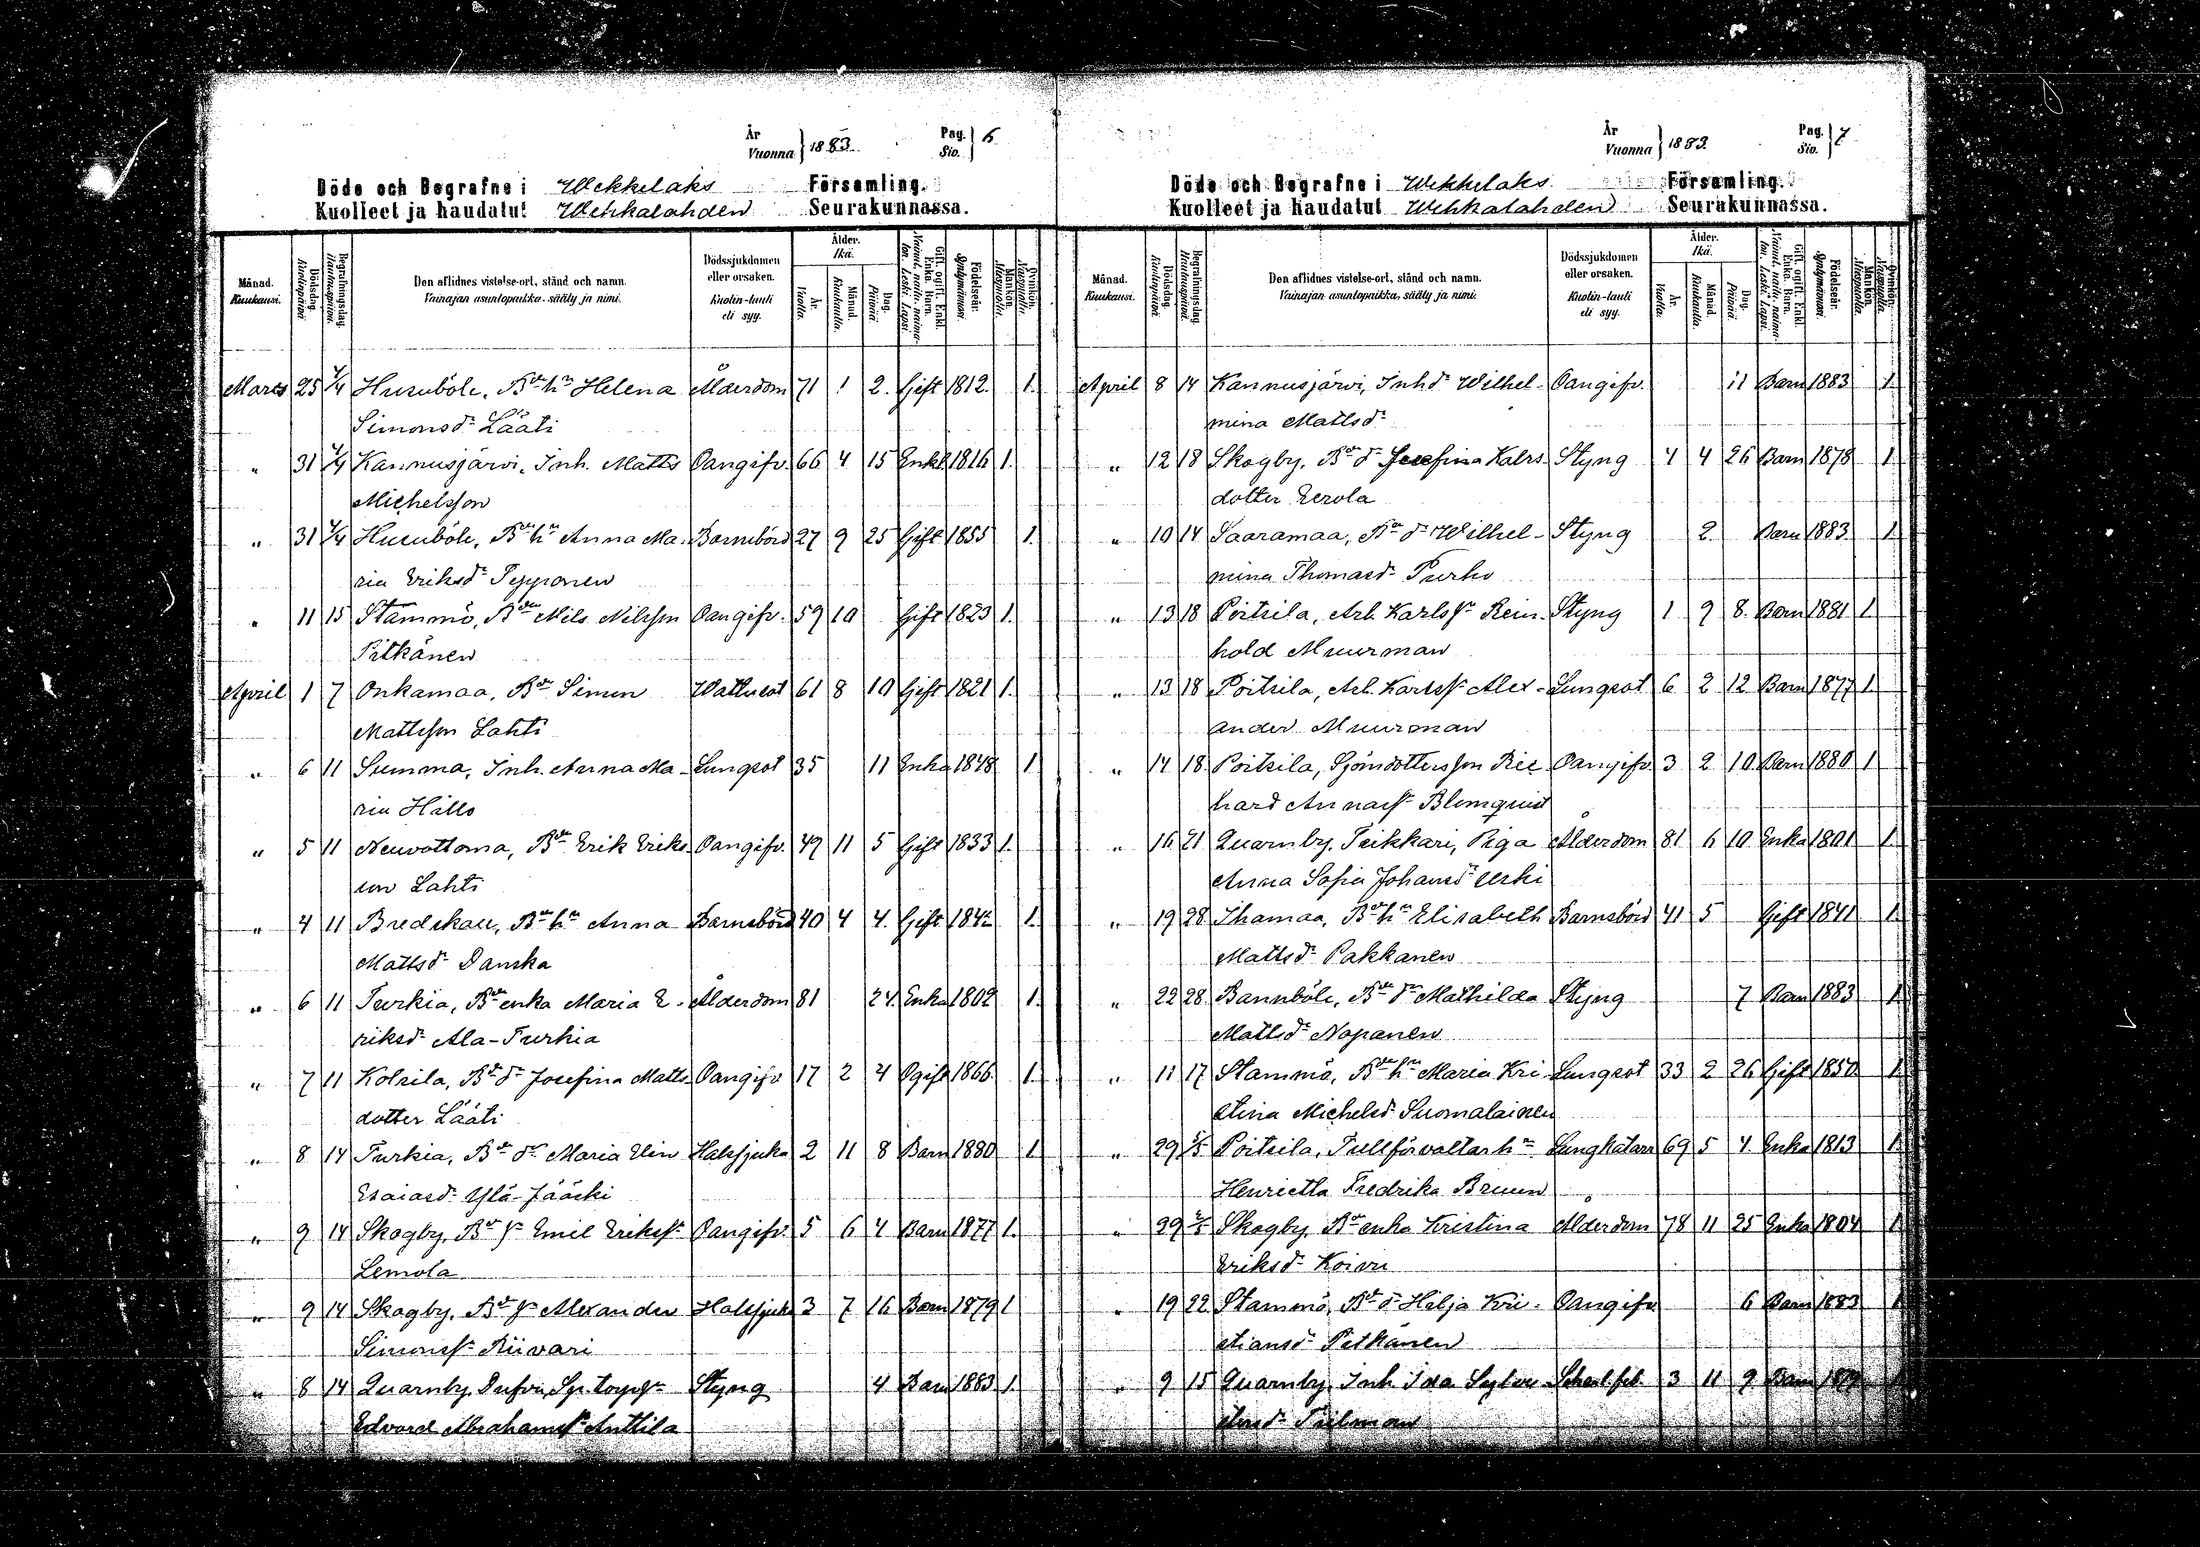 År
Vuonna } 1883.
Pag.
Sio. } 6
Döde och Begrafne i Wekkelaks Församling.
Kuolleet ja haudatut Wehkalahden Seurakunnassa.
Månad. Kuukausi.
Dödsdag. Kuolinpäivä.
Begrafningsdag. Hautauspäivä.
Den aflidnes vistelse-ort, stånd och namn.
Vainajan asuntopaikka, sääty ja nimi.
Dödssjukdomen eller orsaken.
Kuolin-tauti eli syy.
Ålder. Ikä.
År. Vuotta.
Månad. Kuukautta.
Dag. Päivää.
Gift, ogift, Enkl. Enka, Barn.
Födelseår. Syntymävuosi.
Mankön. Miespuolia.
Qvinkön. Naispuolia.
Marts 25 1/4 Husuböle, Bde hu Helena Ålderdom 71 1 2. Gift 1812. 1.
Simonsdr Lääti
" 31 1/4 Kannusjärvi, Inh. Matts Oangifv. 66 4 15 Enkl 1816 1.
Michelsson
" 31 1/4 Husuböle, Bde hu Anna Ma- Barnsbörd 27 9 25 Gift 1855 1.
ria Eriksdr Tepponen
" 11 15 Stammö, Bden Nils Nilsson Oangifv. 59 10 Gift 1823 1.
Pitkänen
April 1 7 Onkamaa, Bde Simon Wattusot 61 8 10 Gift 1821 1.
Mattsson Lahti
" 6 11 Summa, Inh. Anna Ma- Lungsot 35 11 Enka 1848 1
ria Hällo
" 5 11 Neuvottoma, Bde Erik Eriks- Oangifv. 49 11 5 Gift 1833 1.
son Lahti
" 4 11 Bredskall, Bde hu Anna Barnsbörd 40 4 4. Gift 1842 1.
Mattsdr Danska
" 6 11 Turkia, Bde enka Maria E- Ålderdom 81 24. Enka 1802 1.
riksdr Ala-Turkia
" 7 11 Kolsila, Bde dr Josefina Matts- Oangifv 17 2 4 Ogift 1866. 1.
dotter Lääti
" 8 14 Turkia, Bde dr Maria Elin Halssjuka 2 11 8 Barn 1880 1
Esaiasdr Ylä-Jääski
" 9 14 Skogby, Bde sn Emil Erikssn Oangifv. 5 6 4 Barn 1877 1.
Lemola
" 9 14 Skogby, Bde sn Alexander Halssjuka 3 7 16 Barn 1879 1
Simonssn Riivari
" 8 14 Quarnby, Sp. torp sn Styng 4 Barn 1883 1.
Edvard Abrahamssn Anttila
År
Vuonna } 1883.
Pag.
Sio. } 7
Döde och Begrafne i Wekkelaks Församling.
Kuolleet ja haudatut Wehkalahden Seurakunnassa.
Månad. Kuukausi.
Dödsdag. Kuolinpäivä.
Begrafningsdag. Hautauspäivä.
Den aflidnes vistelse-ort, stånd och namn.
Vainajan asuntopaikka, sääty ja nimi.
Dödssjukdomen eller orsaken.
Kuolin-tauti eli syy.
Ålder. Ikä.
År. Vuotta.
Månad. Kuukautta.
Dag. Päivää.
Gift, ogift, Enkl. Enka, Barn.
Födelseår. Syntymävuosi.
Mankön. Miespuolia.
Qvinkön. Naispuolia.
April 8 14 Kannusjärvi, Inh dr Wilhel- Oangifv. 11 Barn 1883 1.
mina Mattsdr
" 12 18 Skogby, Bde dr Josefina Kalrs- Styng 4 4 26 Barn 1878 1
dotter Eerola
" 10 14 Saaramaa, Bde dr Wilhel- Styng 2. Barn 1883 1
mina Thomasdr Purho
" 13 18 Poitsila, Arb. Karlssn Rein- Styng 1 9 8. Barn 1881 1.
hold Muurman
" 13 18 Poitsila, Arb. Karlssn Alex- Lungsot 6 2 12 Barn 1877 1.
ander Muurman
" 14 18 Poitsila, Sjömdottersson Ric- Oangifv 3 2 10 Barn 1880 1
hard Annassn Blomquist
" 16 21 Quarnby, Teikkari, Piga Ålderdom 81 6 10 Enka 1801 1.
Anna Sofia Johansdr Uski
" 19 28 Ihamaa, Bde hu Elisabeth Barnsbörd 41 5 Gift 1841 1.
Mattsdr Pakkanen
" 22 28 Bannböle, Bde dr Mathilda Styng 7 Barn 1883 1
Mattsdr Nopanen
" 11 17 Stammö, Bde hu Maria Kri- Lungsot 33 2 26 Gift 1850 1.
stina Michelsdr Suomalainen
" 29 1/5 Poitsila, Tullförvaltar hu Lungkatarr 69 5 4. Enka 1813 1.
Henrietta Fredrika Bruun
" 29 2/5 Skogby, Bde enka Kristina Ålderdom 78 11 25 Enka 1804 1
Eriksdr Koivu
" 19 22 Stammö, Bde dr Hilja Kri- Oangifv 6 Barn 1883 1
stiansdr Pitkänen
" 9 15 Quarnby, Inh Ida 3 11 9 Barn 1879